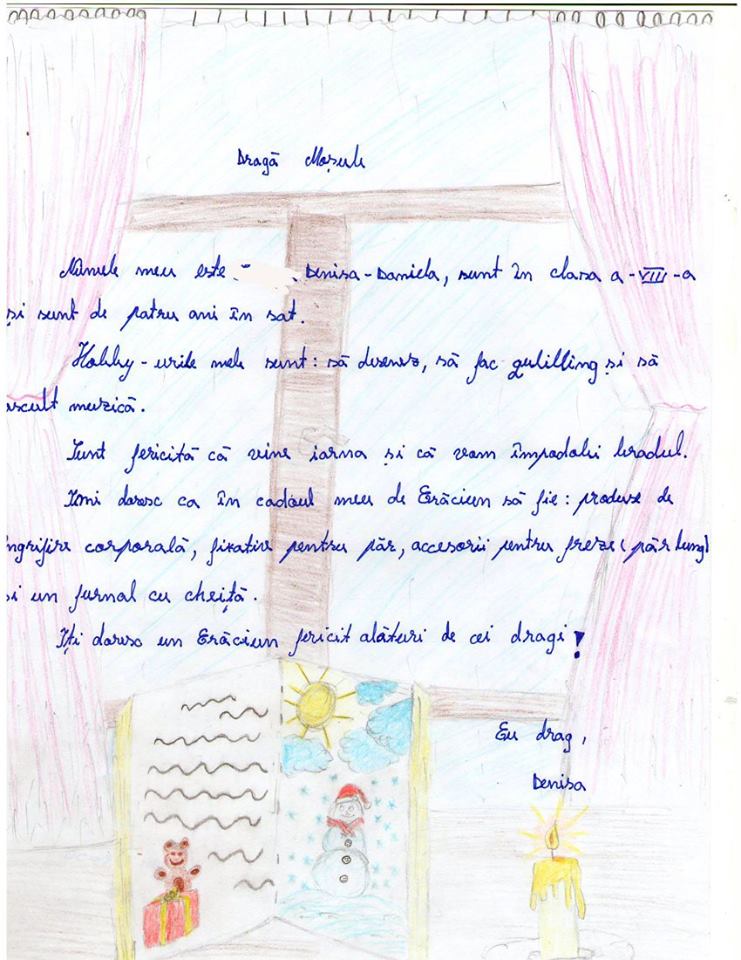 Dragă Moșule
Numele meu este Denisa-Daniela, sunt în clasa a-VIII-a
și sunt de patru ani în sat.
Hobby-urile mele sunt: să desenez, să fac qulilling și să
ascult muzică.
Sunt fericită că vine iarna și că vom împodobi bradul.
Imi doresc ca în cadoul meu de Crăciun să fie: produse de
îngrijire corporală, fixativ pentru păr, accesorii pentru freze (păr lung)
și un jurnal cu cheiță.
Iți doresc un Crăciun fericit alături de cei dragi!
Cu drag,
Denisa